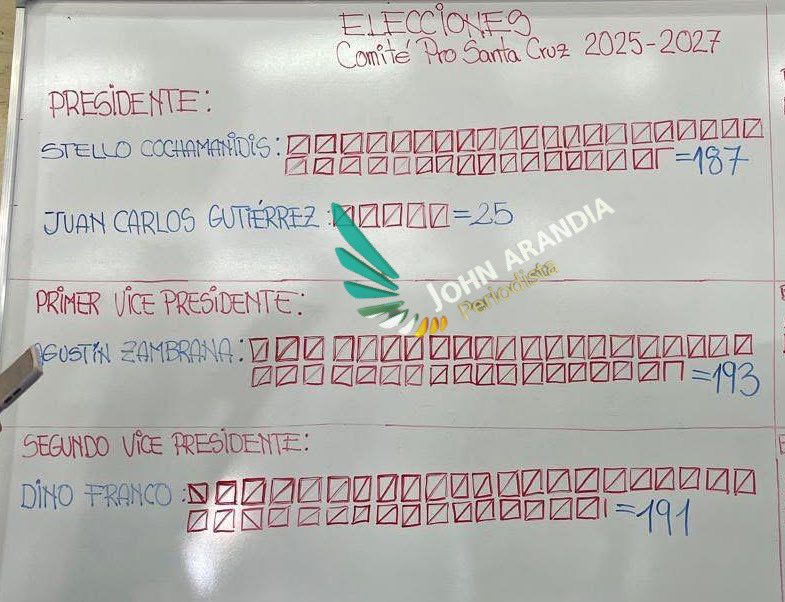 ELECCIONES
Comité Pro Santa Cruz 2025-2027
PRESIDENTE:
STELLO COCHAMANIDIS: =187
JUAN CARLOS GUTIÉRREZ: =25
JOHN ARANDIA
Periodista
PRIMER VICE PRESIDENTE:
AGUSTÍN ZAMBRANA: =193
SEGUNDO VICE PRESIDENTE:
DINO FRANCO: =191